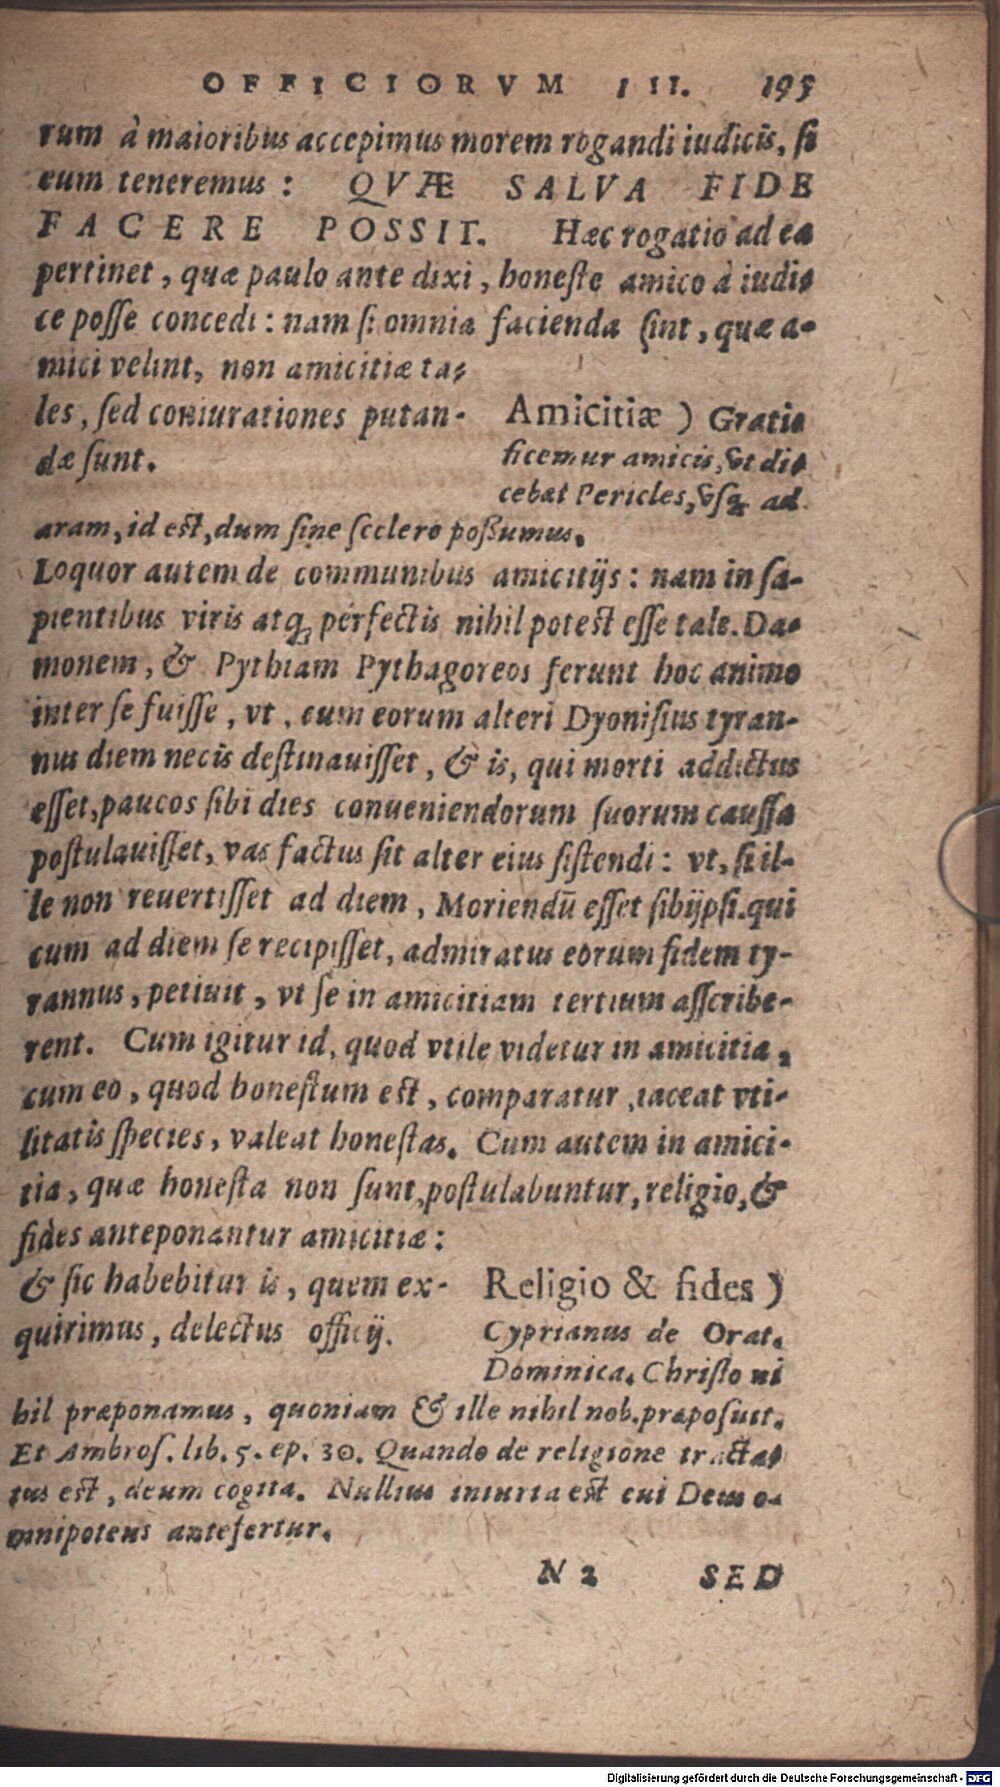 OFFICIORVM III. 195
rum à maioribus accepimus morem rogandi iudicis, si
eum teneremus: QVÆ SALVA FIDE
FACERE POSSIT. Hæc rogatio ad ea
pertinet, quæ paulo ante dixi, honeste amico à iudi-
ce posse concedi: nam si omnia facienda sint, quæ a-
mici velint, non amicitiæ ta-
les, sed coniurationes putan-
dæ sunt.
Amicitiæ) Grati-
ficemur amicis, vt di-
cebat Pericles, vsq; ad
aram, id est, dum sine scelere possumus.
Loquor autem de communibus amicitijs: nam in sa-
pientibus viris atq; perfectis nihil potest esse tale. Da-
monem, & Pythiam Pythagoreos ferunt hoc animo
inter se fuisse, vt, cum eorum alteri Dyonisius tyran-
nus diem necis destinauisset, & is, qui morti addictus
esset, paucos sibi dies conueniendorum suorum caussa
postulauisset, vas factus sit alter eius sistendi: vt, si il-
le non reuertisset ad diem, Moriendū esset sibijpsi. qui
cum ad diem se recipisset, admiratus eorum fidem ty-
rannus, petiuit, vt se in amicitiam tertium asscribe-
rent. Cum igitur id, quod vtile videtur in amicitia,
cum eo, quod honestum est, comparatur, iaceat vti-
litatis species, valeat honestas. Cum autem in amici-
tia, quæ honesta non sunt, postulabuntur, religio, &
fides anteponantur amicitiæ:
& sic habebitur is, quem ex-
quirimus, delectus officij.
Religio & fides)
Cyprianus de Orat.
Dominica. Christo ni
hil præponamus, quoniam & ille nihil nob. præposuit.
Et Ambros. lib. 5. ep. 30. Quando de religione tracta-
tus est, deum cogita. Nullius iniuria est cui Deus o-
mnipotens antefertur.
N 2 SED
Digitalisierung gefördert durch die Deutsche Forschungsgemeinschaft - DFG